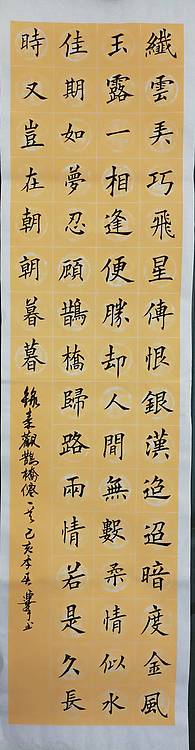 纖雲弄巧飛星傳恨銀漢迢迢暗度金風
玉露一相逢便勝却人間無數柔情似水
佳期如夢忍顧鵲橋歸路兩情若是久長
時又豈在朝朝暮暮
錄秦觀鵲橋僊 己亥